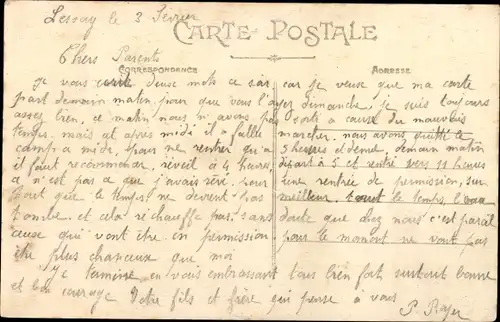 Lessay le 3 Février
CARTE POSTALE
Chers Parents
CORRESPONDANCE
ADRESSE
Je vous écrit deux mots ce soir car je veuse que ma carte
part demain matin pour que vous l'ayer dimanche, je suis toujours
assez bien, ce matin nous n'avons pas sorte a cause du mauvais
temps. mais at apres midi il a fallu marcher, nous avons quitté le
camp a midi, pour ne rentrer qu'a 5 heures et demie, demain matin
il faut recommencer, réveil a 4 heures, départ a 5 et rentré vers 11 heures
ce n'est pas a que j'avais rêvé, pour une rentrée de permission, sur
tout que le temps ne devient pas meilleur, tout le temps, l'eau
tombe et cela réchauffe pas, sans doute que chez nous c'est pareil
ceux qui vont être en permission pour le moment ne vont pas
être plus chanceux que moi
Je termine en vous embrassant tous bien fort surtout bonne
et bon courage Votre fils et frère qui pense a vous
P. Royer